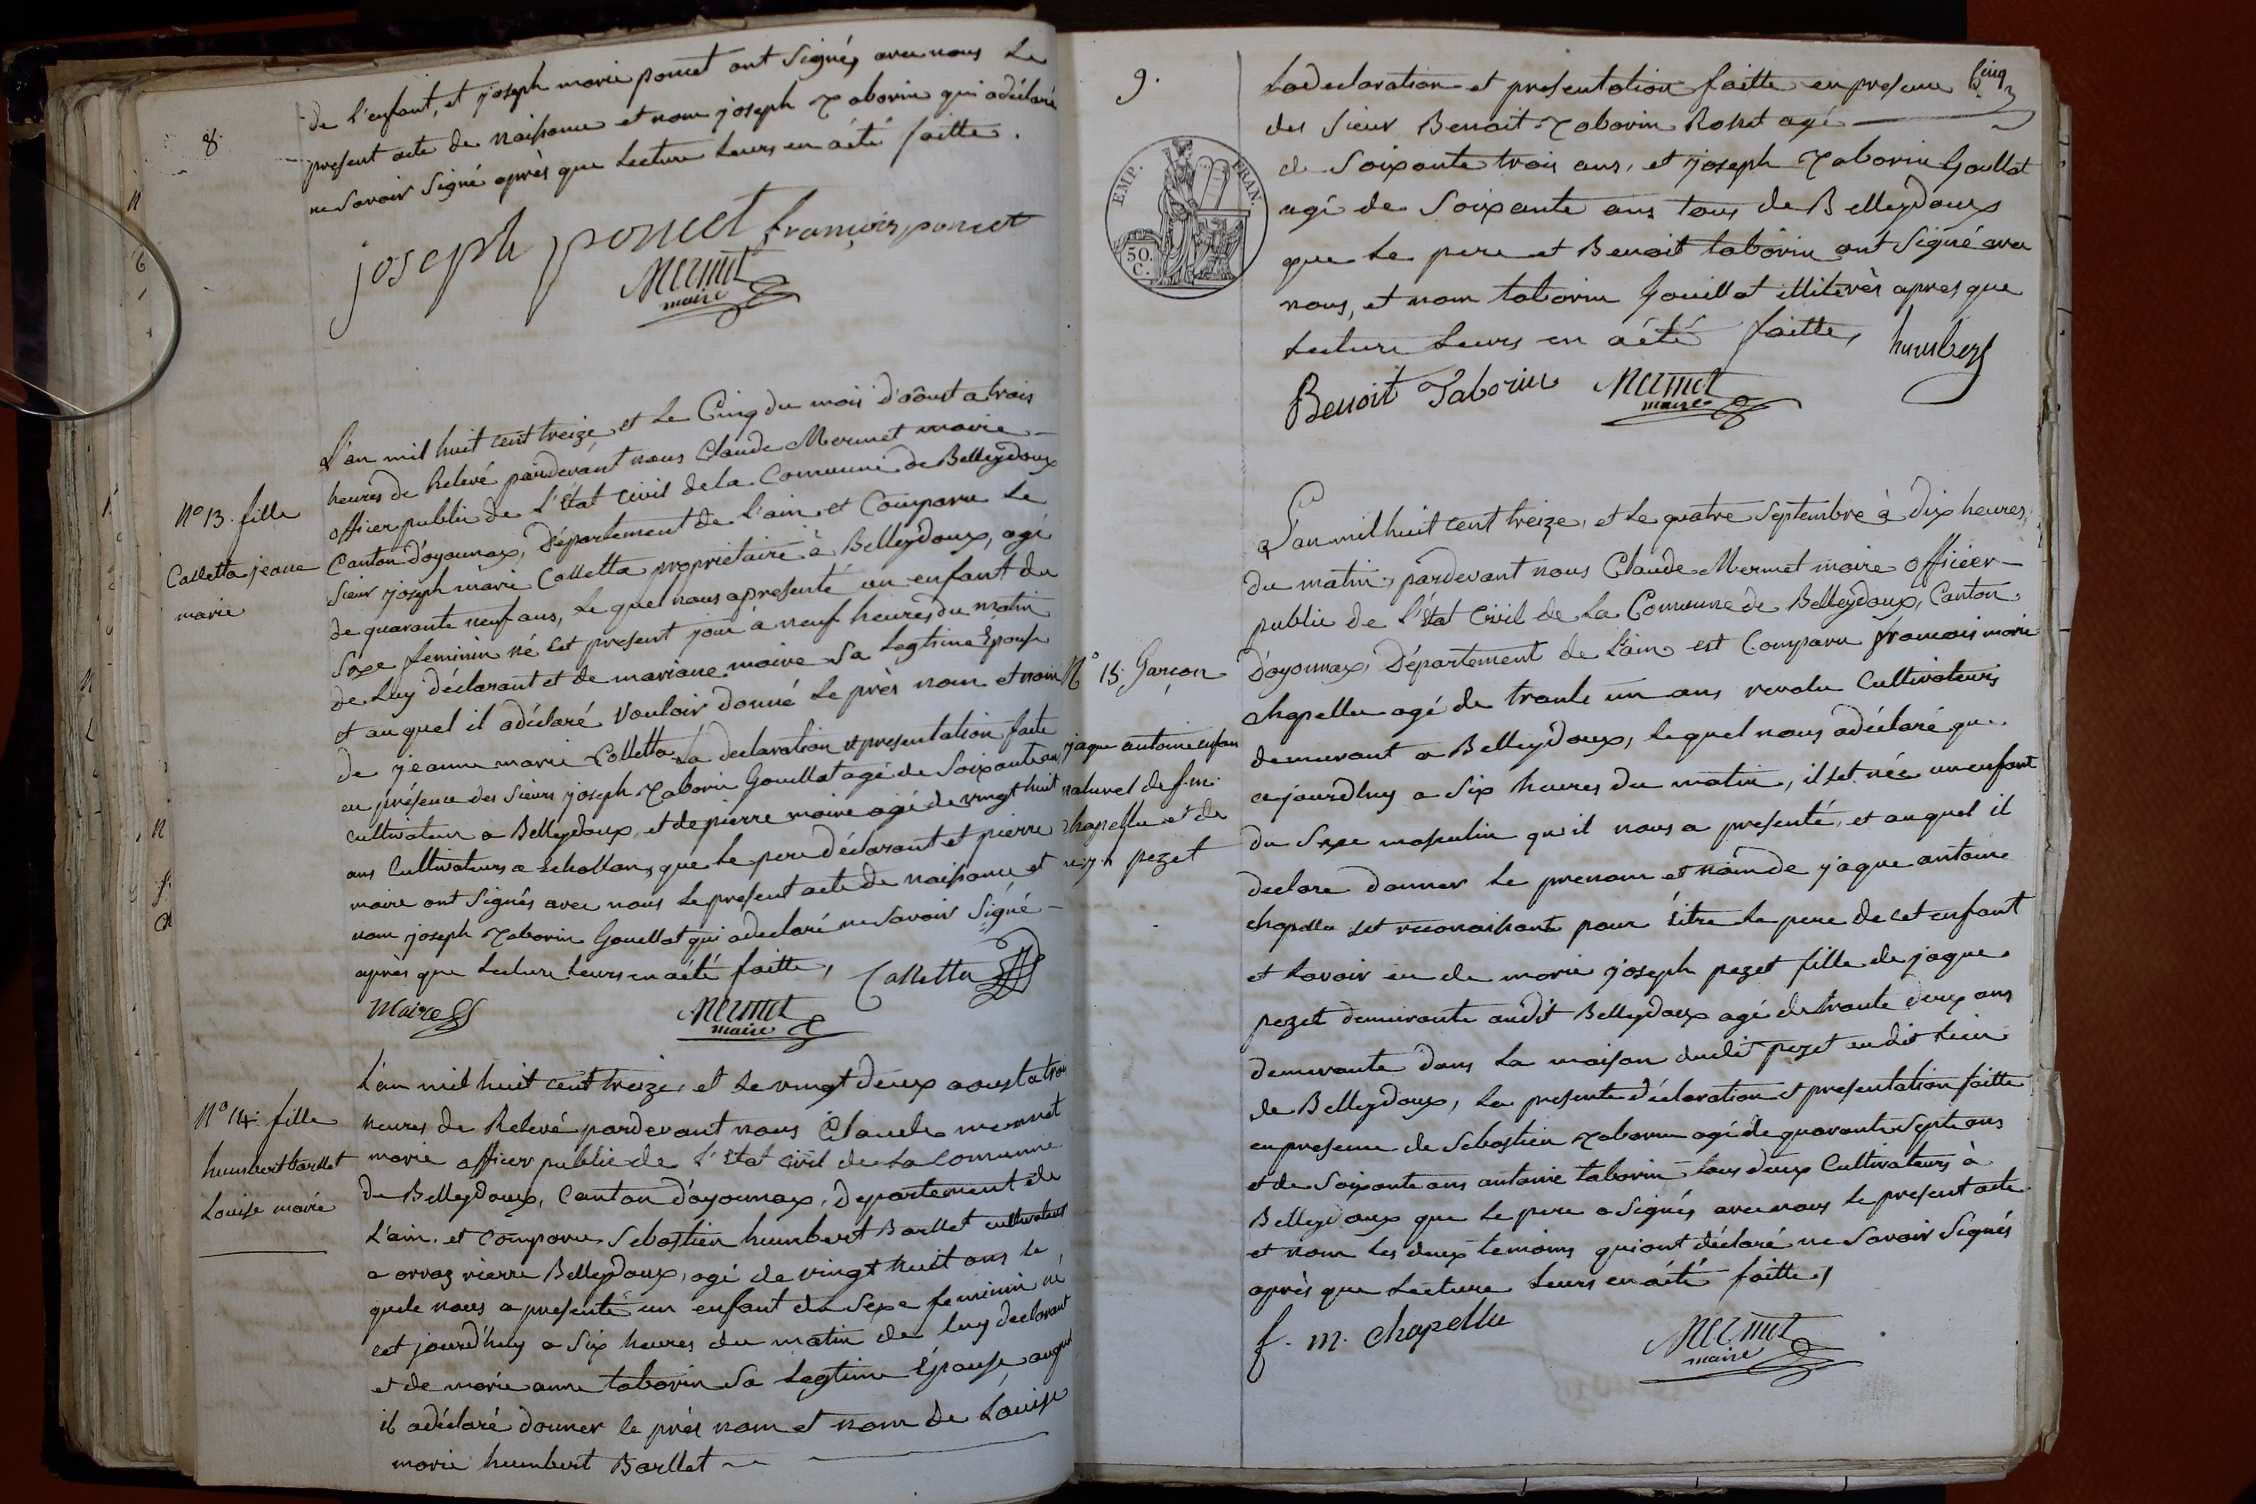 8.
de l'enfant, et joseph marie poncet ont signés avec nous Le
present acte de naissance et nom joseph Taborin qui adéclaré
ne savoir signé après que lecture Leurs en aété faitte.
joseph poncet françois poncet
Mermet
maire
L'an mil huit cent treize, et Le Cinq du mois d'aôust a trois
heures de Relevé pardevant nous Claude Mermet maire
officier public de L'état civil dela Commune de Belleydoux
Canton d'oyonnax, Département de L'ain et Comparu Le
Sieur joseph marie Colletta propriétaire à Belleydoux, agé
de quarante neuf ans, Le quel nous apresenté un enfant du
Sexe feminin né cet present jour à neuf heures du matin
de Luy déclarant et de mariane maire Sa Legtime Epouse
et au quel il adéclaré Vouloir donné Le près nom et nom
de jeanne marie Colletta La declaration et presentation faite
en présence des Sieurs joseph Taborin Gouillat agé de Soixante ans
cultivateur a Belleydoux, et de pierre maire agé de vingt huit
ans Cultivateurs a Echallon, que Le pere déclarant et pierre
maire ont signés avec nous Le present acte de naissance et
nom joseph Taborin Gouillat qui adeclaré ne Savoir Signé
après que Lecture Leurs en aété faitte,
Calletta
Maire
Mermet
maire
N° 13. fille
Calletta jeane
marie
L'an mil huit cent treize, et Le vingt deux aoust a troi
heures de Relevé pardevant nous Claude mermet
marie officier public de L'état civil de La Comune
de Belleydoux, Canton d'oyonnax, Departement de
L'ain. et Comparu Sebastien humbert Barllet cultivateur
a orvaz rierre Belleydoux, agé de vingt huit ans le
quele nous a presenté un enfant du Sexe feminin né
cet jourd'huy a Six heures du matin de Luy declarant
et de marie anne taborin Sa Legtime Epouse, auquel
il adéclaré donner le près nom et nom de Louise
marie humbert Barllet
N° 14. fille
humbert barllet
Louise marie
9.
Cinq
Ladeclaration et presentation faitte en presence
des Sieur Benoit Taborin Rosset agé
de Soixante trois ans, et joseph Taborin Goullat
agé de Soixante ans tous de Belleydoux
que Le pere et Benoit taborin ont signé avec
nous, et nom taborin Gouillat illiterès apres que
Lecture Leurs en aété faitte,
humbert
Benoit Taborin
Mermet
maire
EMP. FRAN.
50. C.
L'an mil huit cent treize, et Le quatre Septembre à dix heures
du matin, pardevant nous Claude Mermet maire officier
public de L'état Civil de La Commune de Belleydoux, Canton
D'oyonnax, Département de L'ain est Comparu francois marie
chapellu agé de trante un ans revolu Cultivateurs
demeurant a Belleydoux, Lequel nous adéclaré que
cejourdhuy a Six heures du matin, il est née un enfant
du Sexe masculin qu'il nous a presenté, et auquel il
declare donner Le prenom et nom de jaque antoine
chapellu Set reconaissant pour être Le pere de cet enfant
et Lavoir eu de marie joseph pezet fille de jaque
pezet demeurante audit Belleydoux agé de trante deux ans
demeurante dans La maison dudit pezet audit Lieu
de Belleydoux, La presente déclaration et presentation faitte
en presence de Sebastien Taborin agé de quarante Septe ans
et de Soixante ans antoine taborin tous deux Cultivateurs à
Belleydoux que Le pere a signés avec nous Le present acte
et nom Les deux temoins qui ont déclaré ne Savoir Signés
après que Lecture Leurs en aété faitte,
f. m. chapellu
Mermet
maire
N° 15. Garçon
jaque antoine enfan
naturel de f. m.
chapellu et de
pezet